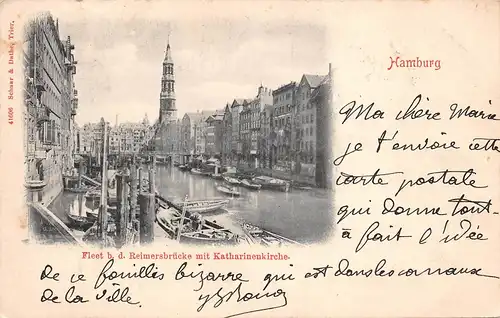 41606 Schaar & Dathe, Trier.
Hamburg
Fleet b. d. Reimersbrücke mit Katharinenkirche.
Ma chère Marie
je t'envoie cette
carte postale
qui donne tout-
à fait l'idée
de ce fouillis bizarre qui est dans les canaux
de la ville.